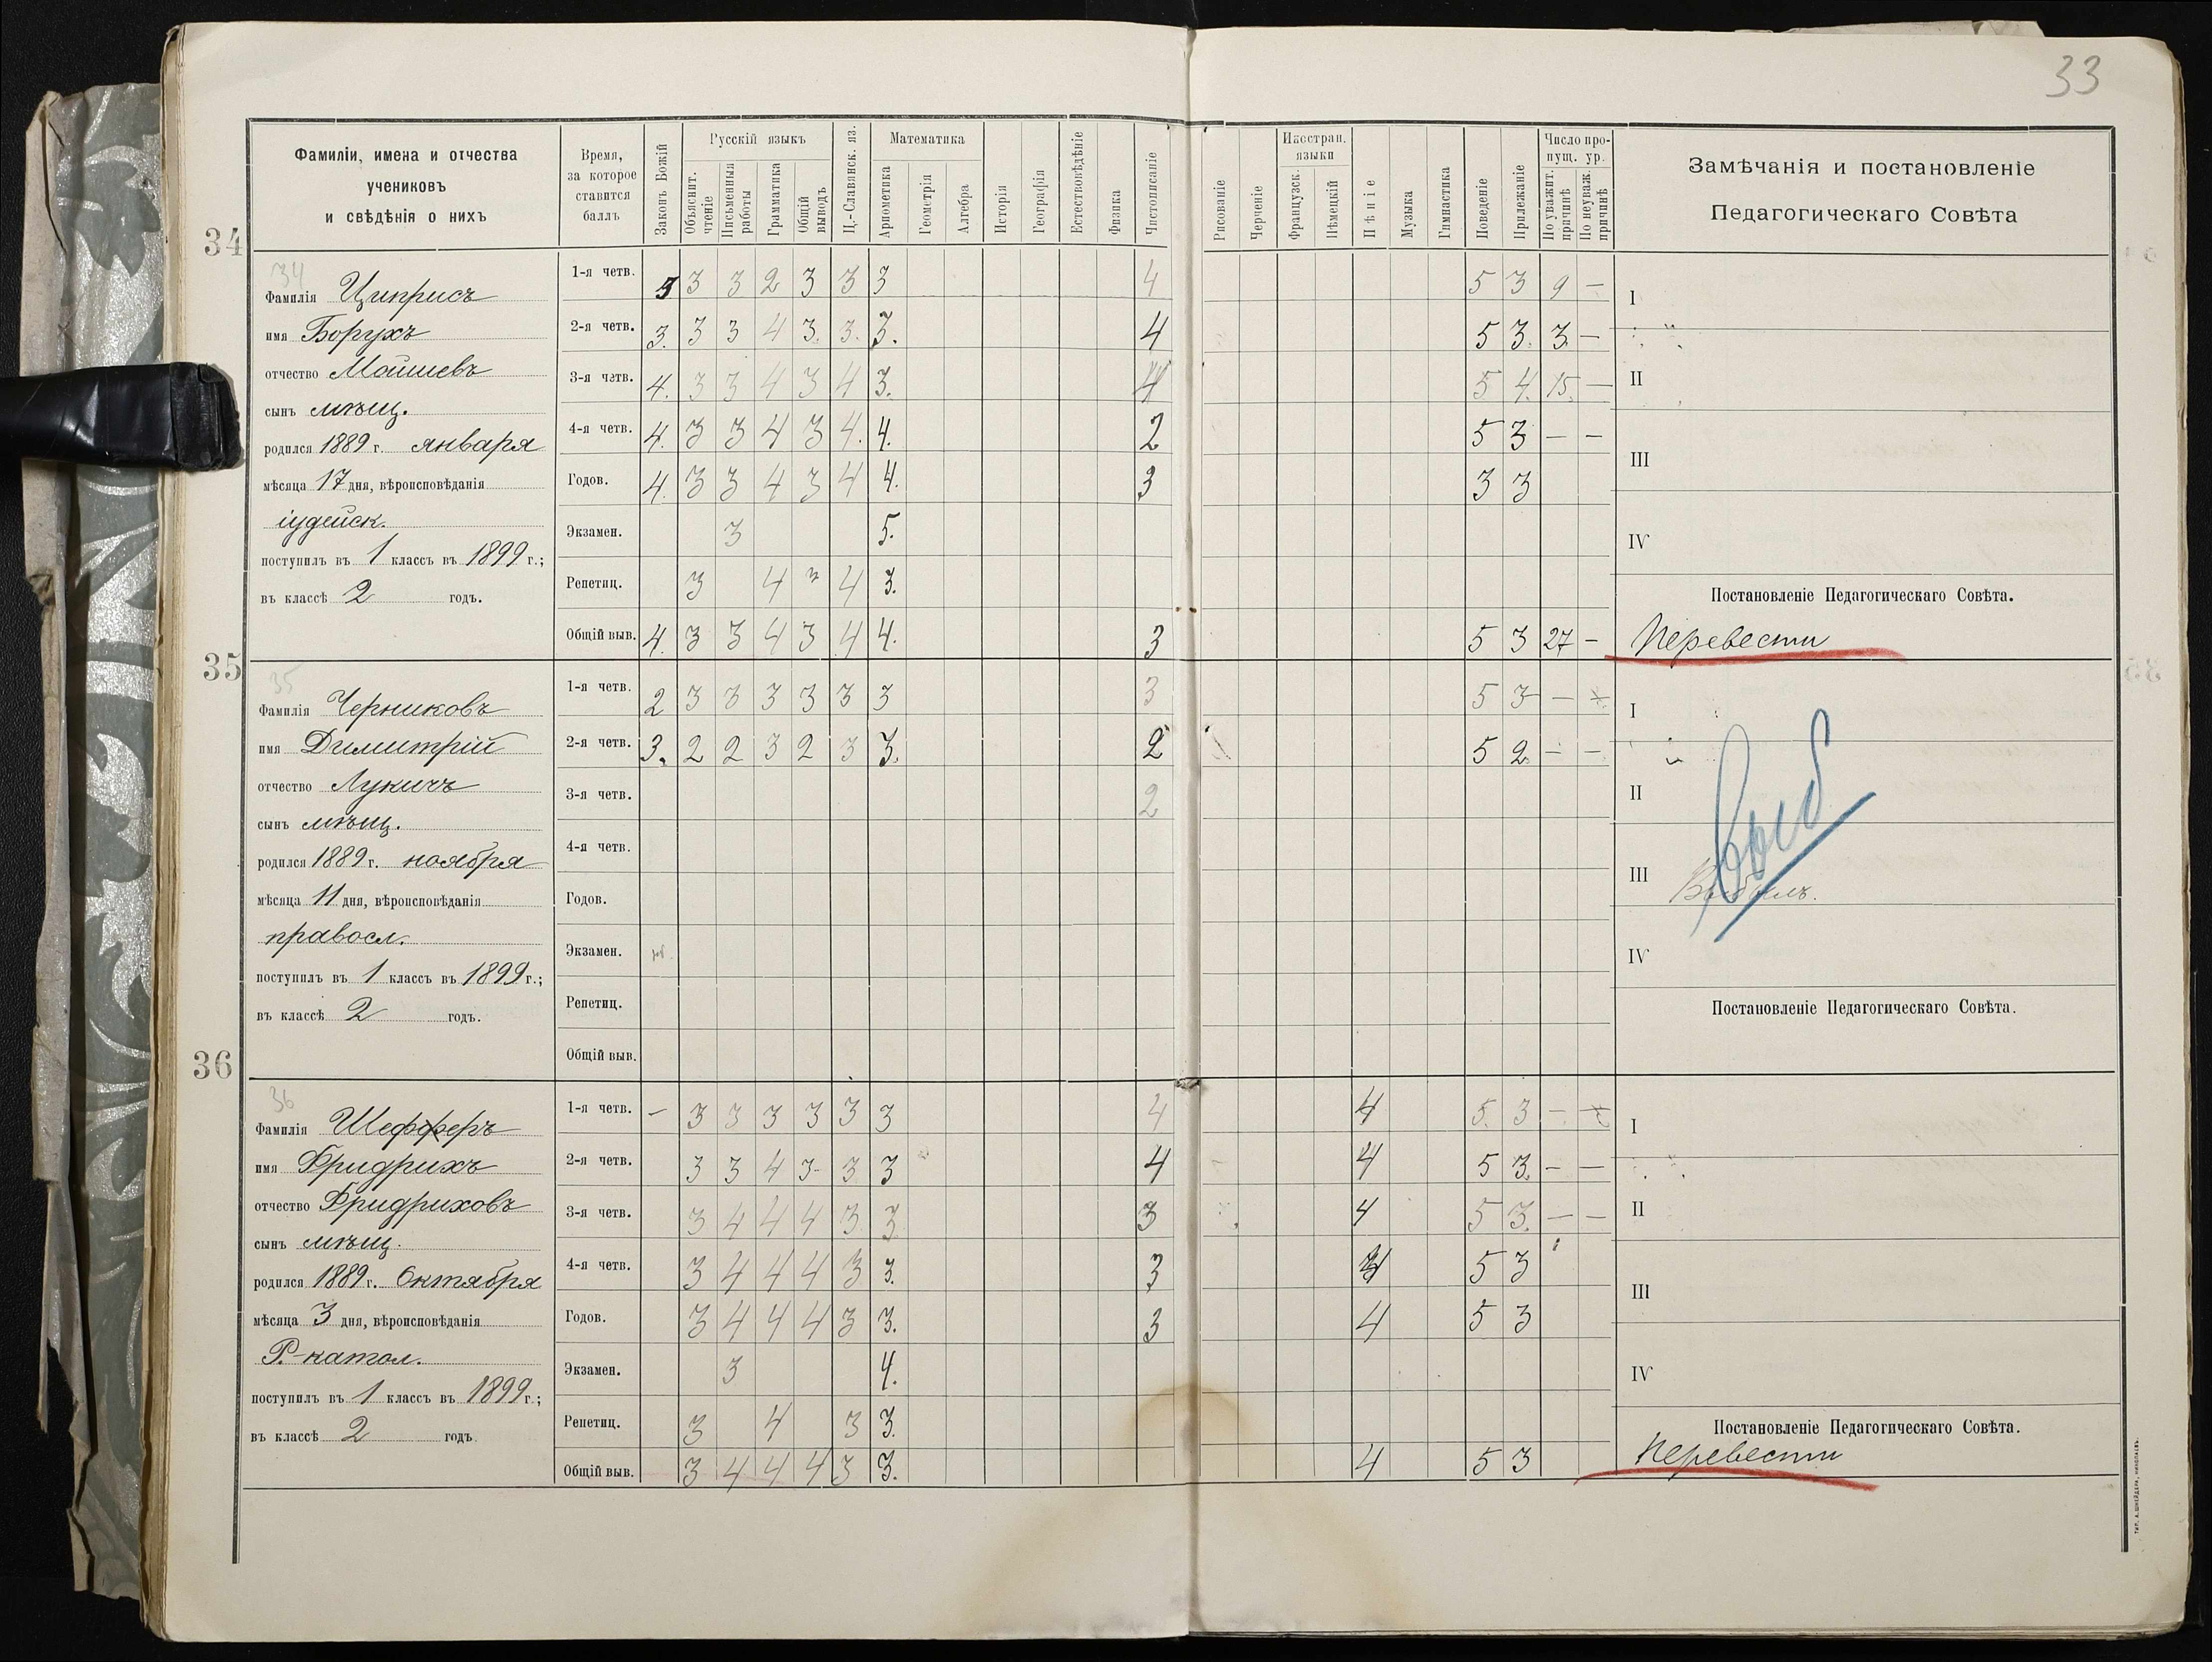 33
Фамиліи, имена и отчества
учениковъ
и свѣдѣнія о нихъ
Время,
за которое
ставится
баллъ
Законъ Божій
Русскій языкъ
Объяснит. чтеніе
Письменныя работы
Грамматика
Общій выводъ
Ц.-Славянск. яз.
Математика
Ариѳметика
Геометрія
Алгебра
Исторія
Географія
Естествовѣдѣніе
Физика
Чистописаніе
Рисованіе
Черченіе
Иностран. языки
Французск.
Нѣмецкій
Пѣніе
Музыка
Гимнастика
Поведеніе
Прилежаніе
Число про-
пущ. ур.
По уважит. причинѣ
По неуваж. причинѣ
Замѣчанія и постановленіе
Педагогическаго Совѣта
34
34
Фамилія Циприсъ
имя Борухъ
отчество Мошиевъ
сынъ мѣщ.
родился 1889 г. января
мѣсяца 17 дня, вѣроисповѣданія
іудейск.
поступилъ въ 1 классъ въ 1899 г.;
въ классѣ 2 годъ.
1-я четв. 3 3 2 3 3 3 4 5 3 9 —
2-я четв. 3. 3 3 4 3. 3. 3. 4 5 3. 3. —
3-я четв. 4. 3 3 4 3 4 3. 4 5 4. 15. —
4-я четв. 4. 3 3 4 3 4. 4. 2 5 3 — —
Годов. 4. 3 3 4 3 4 4. 3 3 3
Экзамен. 3 5.
Репетиц. 3 4 3 4 3.
Общій выв. 4. 3 3 4 3 4 4. 3 5 3 27 —
I
II
III
IV
Постановленіе Педагогическаго Совѣта.
Перевести
35
35
Фамилія Черниковъ
имя Димитрій
отчество Лукичъ
сынъ мѣщ.
родился 1889 г. ноября
мѣсяца 11 дня, вѣроисповѣданія
правосл.
поступилъ въ 1 классъ въ 1899 г.;
въ классѣ 2 годъ.
1-я четв. 2 3 3 3 3 3 3 3 5 3 —
2-я четв. 3. 2 2 3 2 3 3. 2 5 2. — —
3-я четв. 2
4-я четв.
Годов.
Экзамен.
Репетиц.
Общій выв.
I
II
III Выбылъ.
Выб
IV
Постановленіе Педагогическаго Совѣта.
36
36
Фамилія Шефферъ
имя Фридрихъ
отчество Фридриховъ
сынъ мѣщ.
родился 1889 г. Октября
мѣсяца 3 дня, вѣроисповѣданія
Р.-катол.
поступилъ въ 1 классъ въ 1899 г.;
въ классѣ 2 годъ
1-я четв. — 3 3 3 3 3 3 4 4 5. 3 —
2-я четв. 3 3 4 3 3 3 4 4 5 3. — —
3-я четв. 3 4 4 4 3. 3 3 4 5 3. — —
4-я четв. 3 4 4 4 3 3. 3 5 3
Годов. 3 4 4 4 3 3. 3 4 5 3
Экзамен. 3 4.
Репетиц. 3 4 3 3.
Общій выв. 3 4 4 4 3 3. 4 5 3
I
II
III
IV
Постановленіе Педагогическаго Совѣта.
Перевести